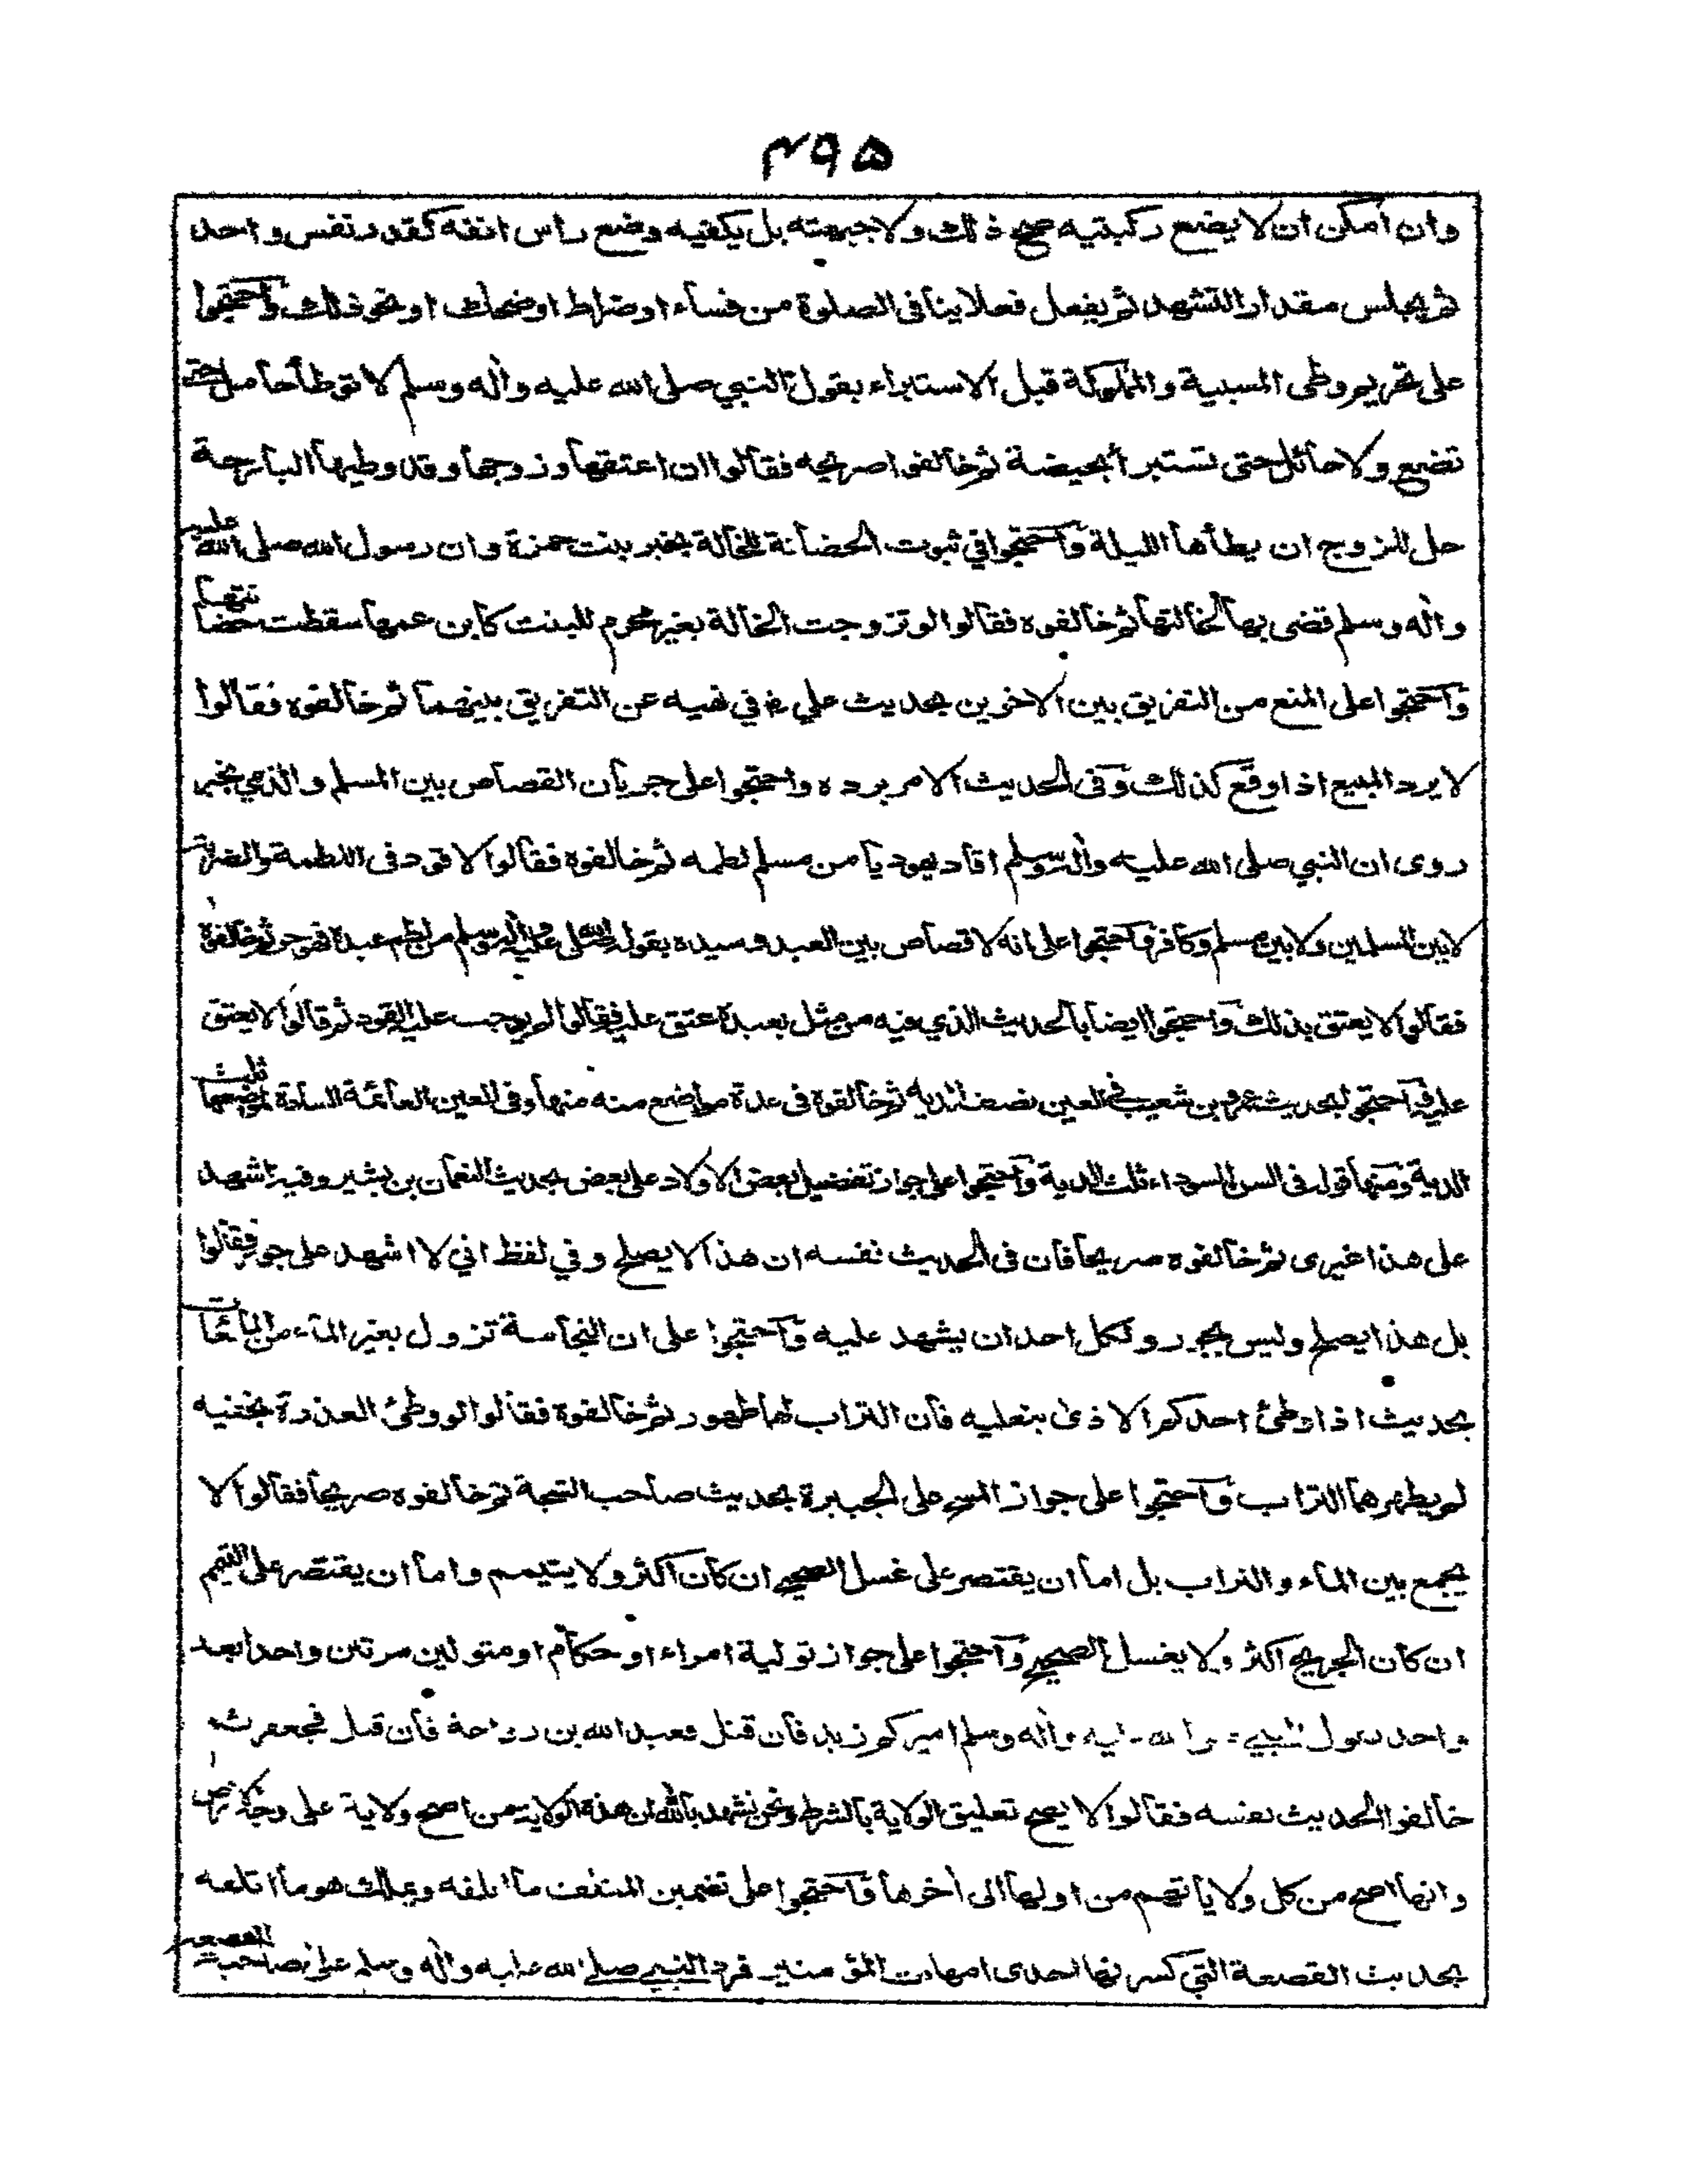 ٤٩٥
وان امكن ان لا يضع ركبتيه صح ذلك ولا جبهته بل يكفيه وضع راس انفه كقدر نفس واحد
ثم يجلس مقدار التشهد ثم يفعل فعلا ينافى الصلوة من فساء او ضراط او ضحك او نحو ذلك واحتجوا
على تحريم وطى المسبية والمملوكة قبل الاستبراء بقول النبي صلى الله عليه واله وسلم لا توطأ حامل حتى
تضع ولا حائل حتى تستبرأ بحيضة ثم خالفوا صريحه فقالوا ان اعتقها وزوجها وقد وطيها البارحة
حل للزوج ان يطأها الليلة واحتجوا في ثبوت الحضانة للخالة بخبر بنت حمزة وان رسول الله صلى الله عليه
واله وسلم قضى بها لخالتها ثم خالفوه فقالوا لو تزوجت الخالة بغير محرم للبنت كابن عمها سقطت حضانتها
واحتجوا على المنع من التفريق بين الاخوين بحديث علي رض في نهيه عن التفريق بينهما ثم خالفوه فقالوا
لا يرد المبيع اذا وقع كذلك وفى الحديث الامر برده واحتجوا على جريان القصاص بين المسلم والذمي بخبر
روى ان النبي صلى الله عليه واله وسلم اقاد يهوديا من مسلم لطمه ثم خالفوه فقالوا لا قود فى اللطمة والضربة
لا بين المسلمين ولا بين مسلم وكافر واحتجوا على انه لا قصاص بين العبد وسيده بقوله صلى الله عليه واله وسلم من لطم عبده فهو حر ثم خالفوه
فقالوا لا يعتق بذلك واحتجوا ايضا بالحديث الذي فيه من مثل بعبده عتق عليه فقالوا لم يوجب عليه القود ثم قالوا لا يعتق
عليه واحتجوا بحديث عمرو بن شعيب في العين نصف الدية ثم خالفوه فى عدة مواضع منه منها وفى العين العائمة السادة لموضعها ثلث
الدية ومنها قوله فى السن السوداء ثلث الدية واحتجوا على جواز تفضيل بعض الاولاد على بعض بحديث النعمان بن بشير وفيه اشهد
على هذا غيرى ثم خالفوه صريحا فان فى الحديث نفسه ان هذا لا يصلح وفي لفظ اني لا اشهد على جور فقالوا
بل هذا يصلح وليس بجور ولكل احد ان يشهد عليه واحتجوا على ان النجاسة تزول بغير الماء من المائعات
بحديث اذا وطئ احدكم الاذى بنعليه فان التراب لهما طهور ثم خالفوه فقالوا لو وطئ العذرة بخفيه
لم يطهرهما التراب واحتجوا على جواز المسح على الجبيرة بحديث صاحب الشجة ثم خالفوه صريحا فقالوا لا
يجمع بين الماء والتراب بل اما ان يقتصر على غسل الصحيح ان كان اكثر ولا يتيمم واما ان يقتصر على التيمم
ان كان الجريح اكثر ولا يغسل الصحيح واحتجوا على جواز تولية امراء او حكام او متولين مرتبين واحدا بعد
واحد بقول النبي صلى الله عليه واله وسلم اميركم زيد فان قتل فعبد الله بن رواحة فان قتل فجعفر ثم
خالفوا الحديث نفسه فقالوا لا يصح تعليق الولاية بالشرط ونحن نشهد بالله ان هذه الولاية من اصح ولاية على وجه الارض
وانها اصح من كل ولاياتهم من اولها الى اخرها واحتجوا على تضمين المتلف ما اتلفه ويملك هو ما اتلفه
بحديث القصعة التي كسرتها احدى امهات المؤمنين فرد النبي صلى الله عليه واله وسلم على صاحب القصعة